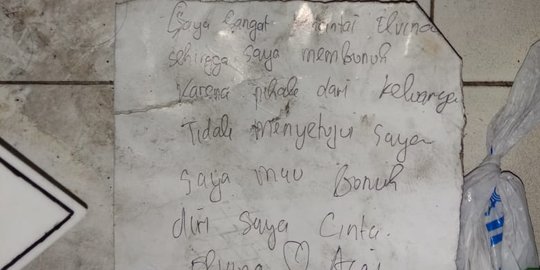 Saya Sangat mencintai Elvina
sehingga saya membunuh
Karena pihak dari Keluarga
Tidak menyetujui Saya
Saya mau Bunuh
diri Saya Cinta.
Elvina ♡